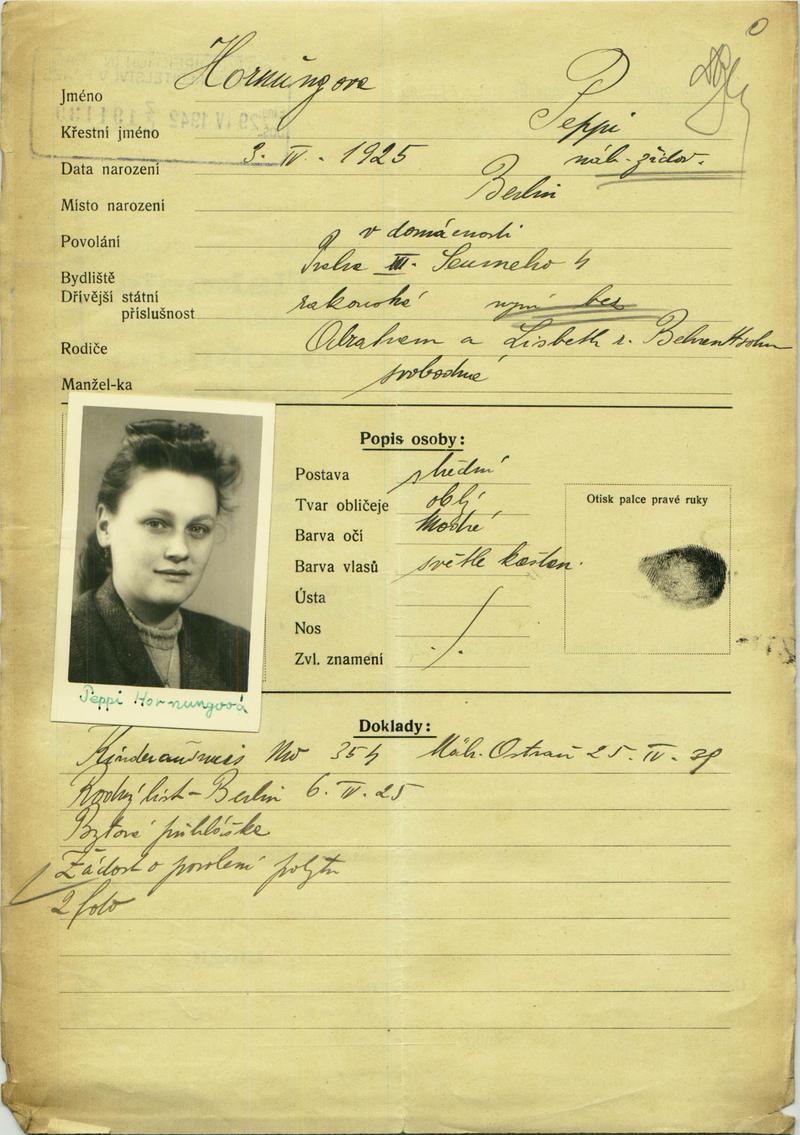 Jméno Hornungova
Křestní jméno Peppi
Data narození 3. IV. 1925 náb. židov.
Místo narození Berlin
Povolání v domácnosti
Bydliště Praha III. Seumeho 4
Dřívější státní
příslušnost rakouská nyní bez
Rodiče Abraham a Lisbeth r.
Manžel-ka svobodná
Popis osoby:
Postava střední
Tvar obličeje oblý
Barva očí Modré
Barva vlasů světle kaštan.
Ústa
Nos
Zvl. znamení
Otisk palce pravé ruky
Peppi Hornungová
Doklady:
Kinderausweis No 354 Mäh. Ostrau 25. IV. 39
Rodný list - Berlin 6. IV. 25
Bytová přihláška
Žádost o povolení pobytu
2 foto